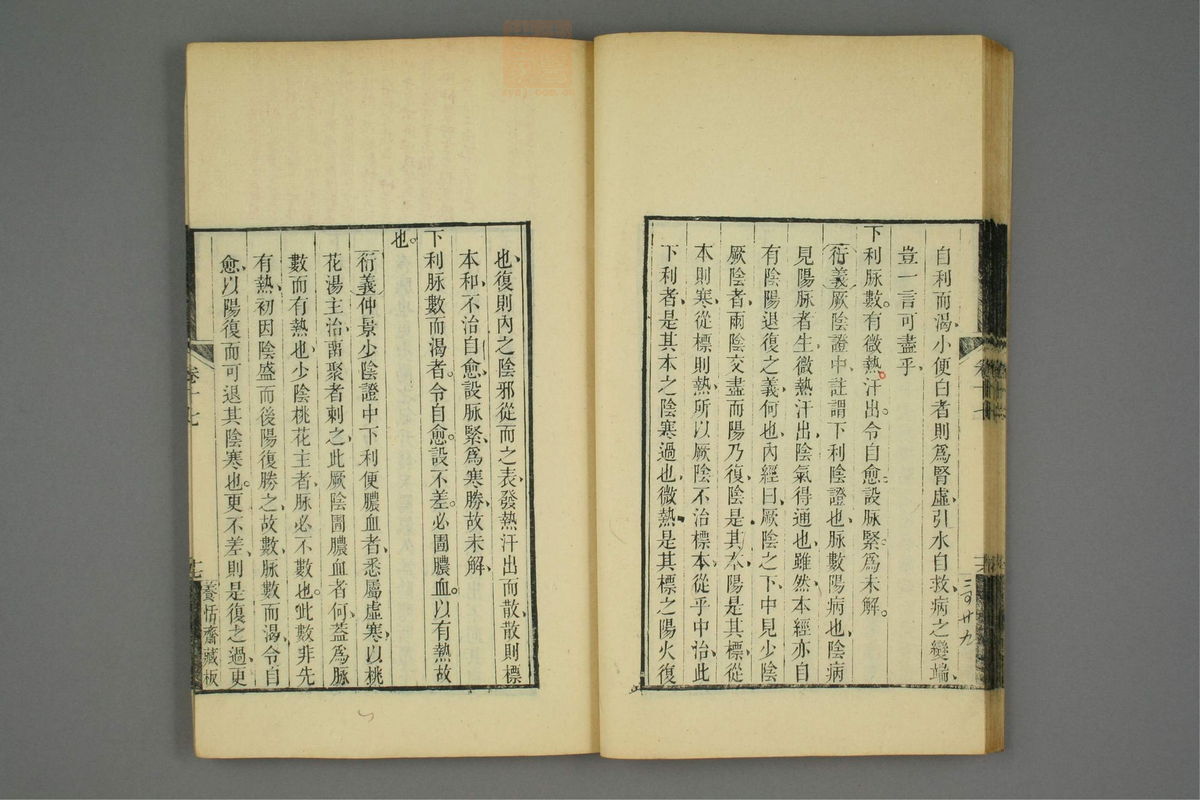 自利而渴、小便白者則爲腎虛、引水自救、病之變端、
豈一言可盡乎、
下利脉數。有微熱。汗出。令自愈。設脉緊。爲未解。
衍義厥陰證中、註謂下利陰證也、脉數陽病也、陰病
見陽脉者生、微熱汗出、陰氣得通也、雖然本經亦自
有陰陽退復之義、何也、內經曰、厥陰之下、中見少陰
厥陰者、兩陰交盡而陽乃復、陰是其本、陽是其標、從
本則寒、從標則熱、所以厥陰不治標本、從乎中治、此
下利者、是其本之陰寒過也、微熱是其標之陽火復
卷十七
也、復則內之陰邪從而之表、發熱汗出而散、散則標
本和、不治自愈、設脉緊、爲寒勝、故未解、
下利脉數而渴者。令自愈。設不差。必圊膿血。以有熱故
也。
衍義仲景少陰證中、下利便膿血者、悉屬虛寒、以桃
花湯主治、畱聚者刺之、此厥陰圊膿血者何、葢爲脉
數而有熱也、少陰桃花主者、脉必不數也、此數非先
有熱、初因陰盛而後陽復勝之、故數、脉數而渴、令自
愈、以陽復而可退其陰寒也、更不差、則是復之過、更
卷十七
養恬齋藏板